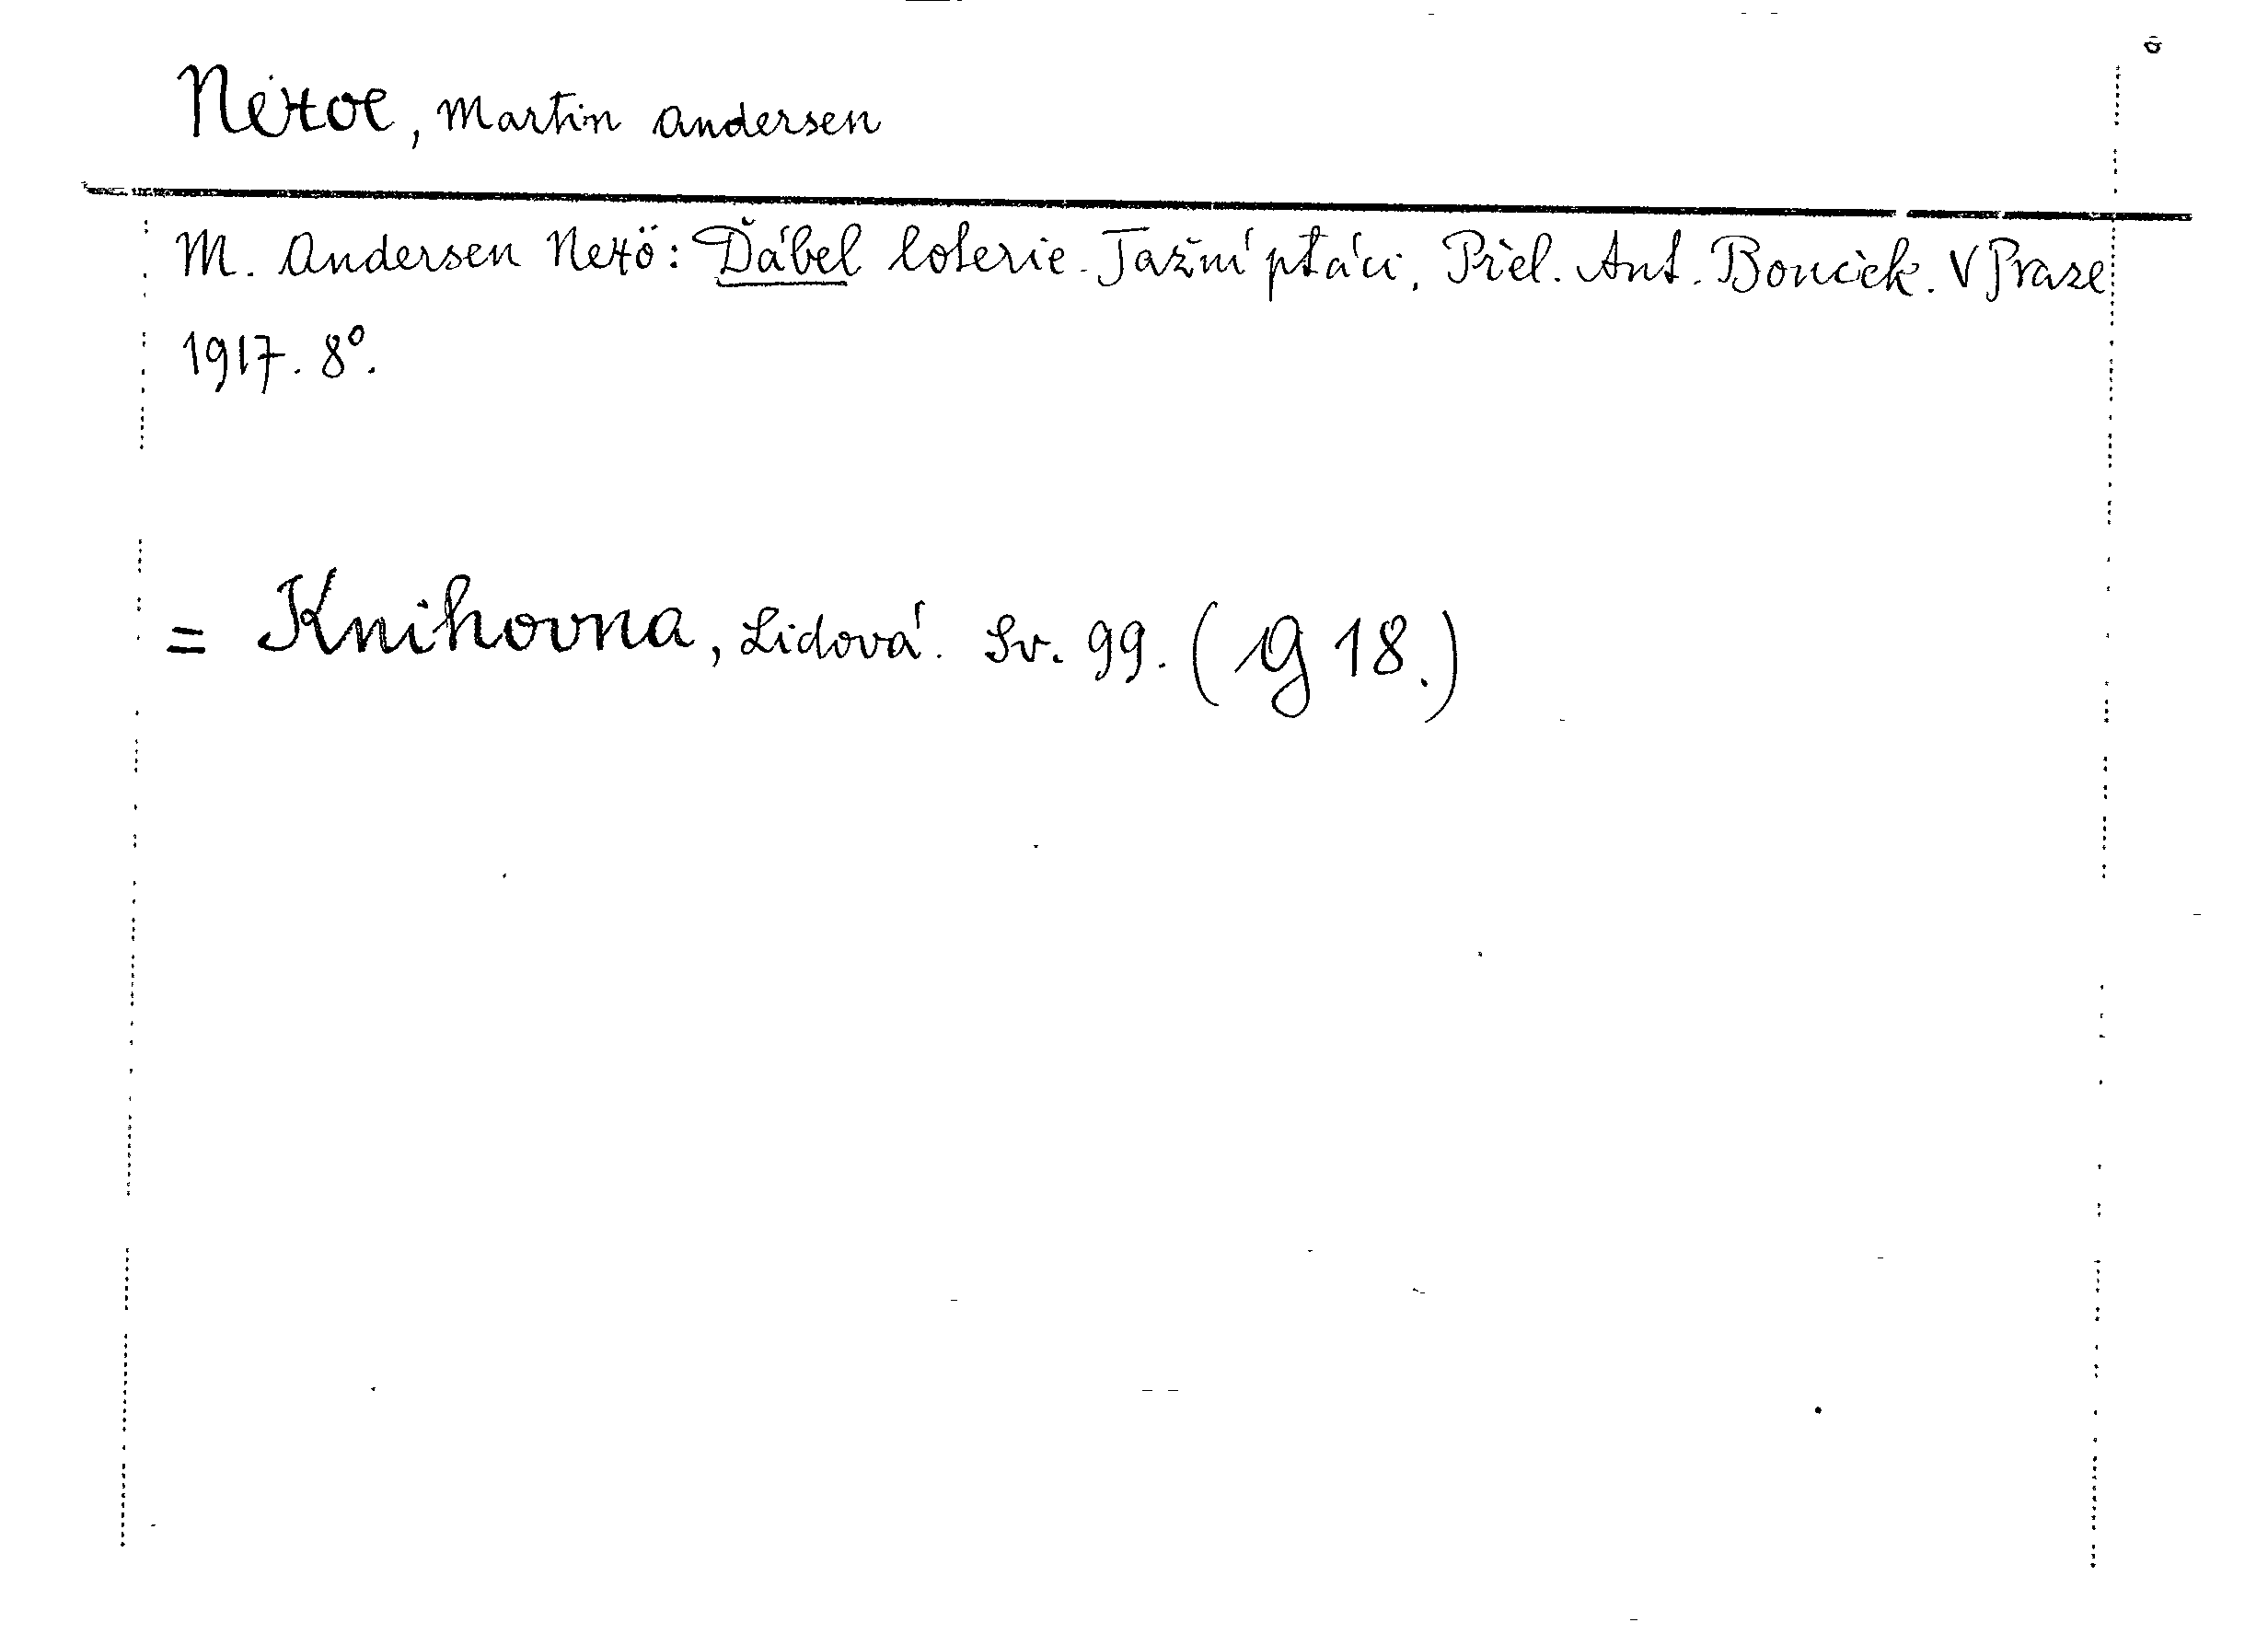 Nexoe, Martin Andersen
M. Andersen Nexö: Ďábel loterie. Tažní ptáci. Přel. Ant. Bouček. V Praze
1917. 8°.
= Knihovna, Lidová. Sv. 99. (G 18.)